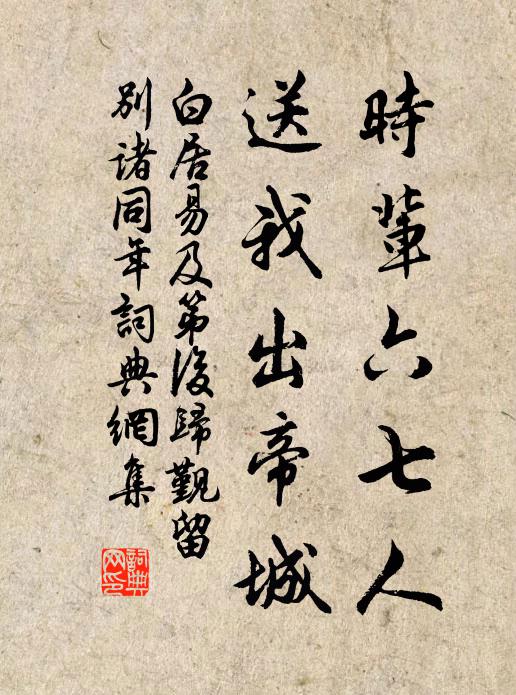 時輩六七人
送我出帝城
白居易及第後歸覲留
別諸同年詞典網集
詞典
网印